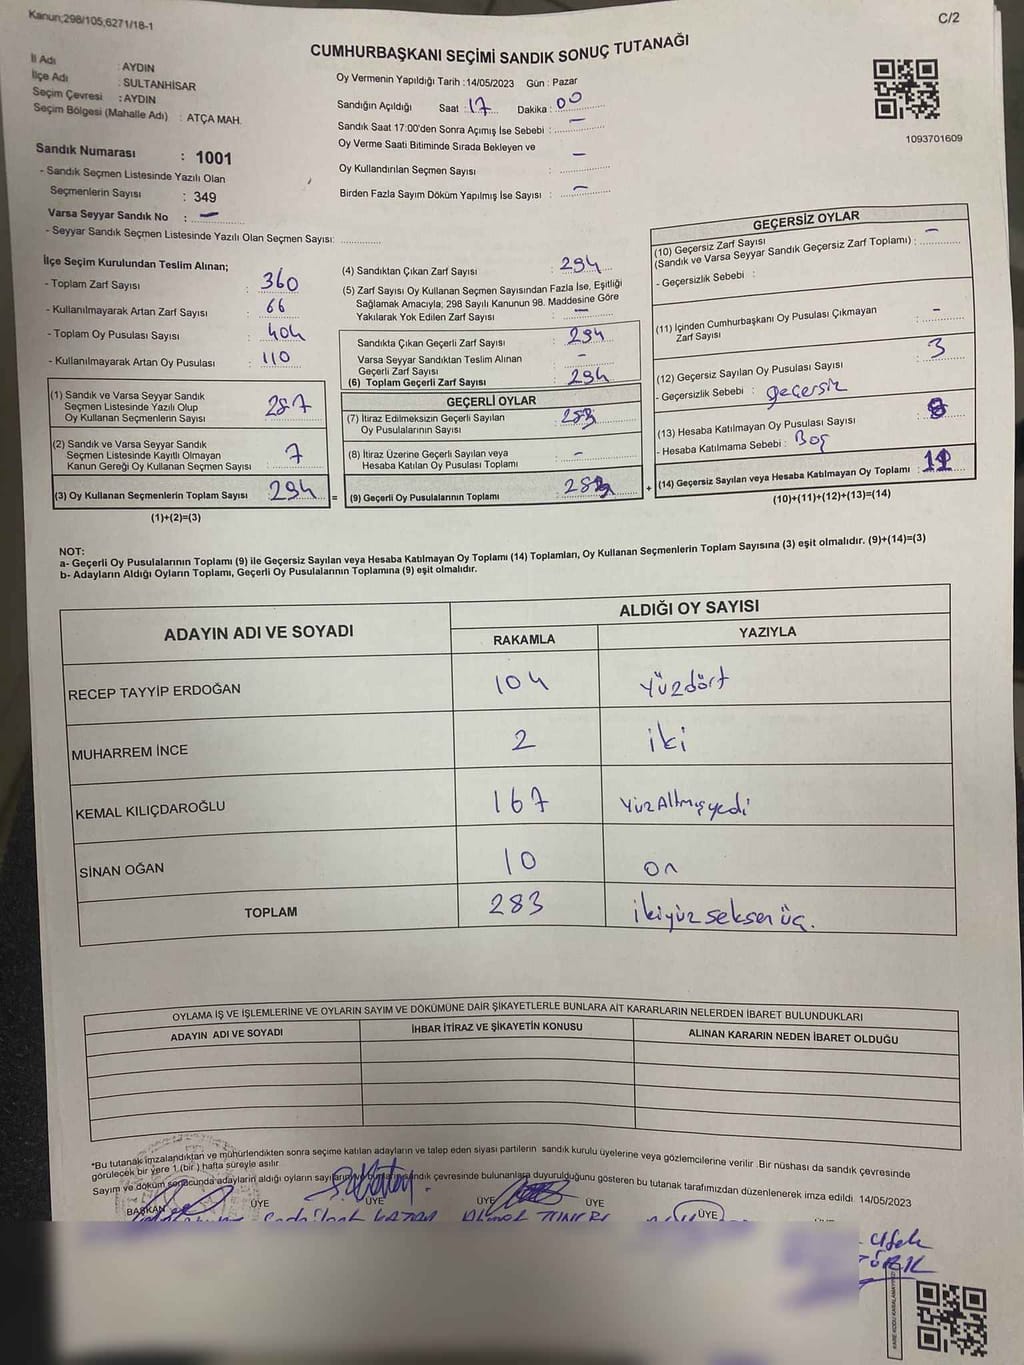 Kanun;298/105,6271/18-1
C/2
CUMHURBAŞKANI SEÇİMİ SANDIK SONUÇ TUTANAĞI
İl Adı : AYDIN
İlçe Adı : SULTANHİSAR
Seçim Çevresi : AYDIN
Seçim Bölgesi (Mahalle Adı) : ATÇA MAH.
Sandık Numarası : 1001
- Sandık Seçmen Listesinde Yazılı Olan
Seçmenlerin Sayısı : 349
Varsa Seyyar Sandık No : –
- Seyyar Sandık Seçmen Listesinde Yazılı Olan Seçmen Sayısı: ..............
Oy Vermenin Yapıldığı Tarih : 14/05/2023 Gün : Pazar
Sandığın Açıldığı Saat : 17 Dakika : 00
Sandık Saat 17:00'den Sonra Açımış İse Sebebi : –
Oy Verme Saati Bitiminde Sırada Bekleyen ve
Oy Kullandırılan Seçmen Sayısı : –
Birden Fazla Sayım Döküm Yapılmış İse Sayısı : –
1093701609
İlçe Seçim Kurulundan Teslim Alınan;
- Toplam Zarf Sayısı : 360
- Kullanılmayarak Artan Zarf Sayısı : 66
- Toplam Oy Pusulası Sayısı : 404
- Kullanılmayarak Artan Oy Pusulası : 110
(1) Sandık ve Varsa Seyyar Sandık
Seçmen Listesinde Yazılı Olup
Oy Kullanan Seçmenlerin Sayısı : 287
(2) Sandık ve Varsa Seyyar Sandık
Seçmen Listesinde Kayıtlı Olmayan
Kanun Gereği Oy Kullanan Seçmen Sayısı : 7
(3) Oy Kullanan Seçmenlerin Toplam Sayısı : 294
(1)+(2)=(3)
(4) Sandıktan Çıkan Zarf Sayısı : 294
(5) Zarf Sayısı Oy Kullanan Seçmen Sayısından Fazla İse, Eşitliği
Sağlamak Amacıyla; 298 Sayılı Kanunun 98. Maddesine Göre
Yakılarak Yok Edilen Zarf Sayısı : –
Sandıkta Çıkan Geçerli Zarf Sayısı : 294
Varsa Seyyar Sandıktan Teslim Alınan
Geçerli Zarf Sayısı : –
(6) Toplam Geçerli Zarf Sayısı : 294
GEÇERLİ OYLAR
(7) İtiraz Edilmeksizin Geçerli Sayılan
Oy Pusulalarının Sayısı : 283
(8) İtiraz Üzerine Geçerli Sayılan veya
Hesaba Katılan Oy Pusulası Toplamı : –
= (9) Geçerli Oy Pusulalarının Toplamı : 283
GEÇERSİZ OYLAR
(10) Geçersiz Zarf Sayısı
(Sandık ve Varsa Seyyar Sandık Geçersiz Zarf Toplamı) : –
- Geçersizlik Sebebi :
(11) İçinden Cumhurbaşkanı Oy Pusulası Çıkmayan
Zarf Sayısı : –
(12) Geçersiz Sayılan Oy Pusulası Sayısı : 3
- Geçersizlik Sebebi : geçersiz
(13) Hesaba Katılmayan Oy Pusulası Sayısı : 8
- Hesaba Katılmama Sebebi : Boş
+ (14) Geçersiz Sayılan veya Hesaba Katılmayan Oy Toplamı : 11
(10)+(11)+(12)+(13)=(14)
NOT:
a- Geçerli Oy Pusulalarının Toplamı (9) ile Geçersiz Sayılan veya Hesaba Katılmayan Oy Toplamı (14) Toplamları, Oy Kullanan Seçmenlerin Toplam Sayısına (3) eşit olmalıdır. (9)+(14)=(3)
b- Adayların Aldığı Oyların Toplamı, Geçerli Oy Pusulalarının Toplamına (9) eşit olmalıdır.
ADAYIN ADI VE SOYADI
ALDIĞI OY SAYISI
RAKAMLA YAZIYLA
RECEP TAYYİP ERDOĞAN 104 yüzdört
MUHARREM İNCE 2 iki
KEMAL KILIÇDAROĞLU 167 yüzAltmışyedi
SİNAN OĞAN 10 on
TOPLAM 283 ikiyüz seksen üç.
OYLAMA İŞ VE İŞLEMLERİNE VE OYLARIN SAYIM VE DÖKÜMÜNE DAİR ŞİKAYETLERLE BUNLARA AİT KARARLARIN NELERDEN İBARET BULUNDUKLARI
ADAYIN ADI VE SOYADI İHBAR İTİRAZ VE ŞİKAYETİN KONUSU ALINAN KARARIN NEDEN İBARET OLDUĞU
*Bu tutanak imzalandıktan ve mühürlendikten sonra seçime katılan adayların ve talep eden siyasi partilerin sandık kurulu üyelerine veya gözlemcilerine verilir. Bir nüshası da sandık çevresinde
görülecek bir yere 1 (bir) hafta süreyle asılır.
Sayım ve döküm sonucunda adayların aldığı oyların sandık çevresinde bulunanlara duyurulduğunu gösteren bu tutanak tarafımızdan düzenlenerek imza edildi 14/05/2023
BAŞKAN ÜYE ÜYE ÜYE ÜYE ÜYE